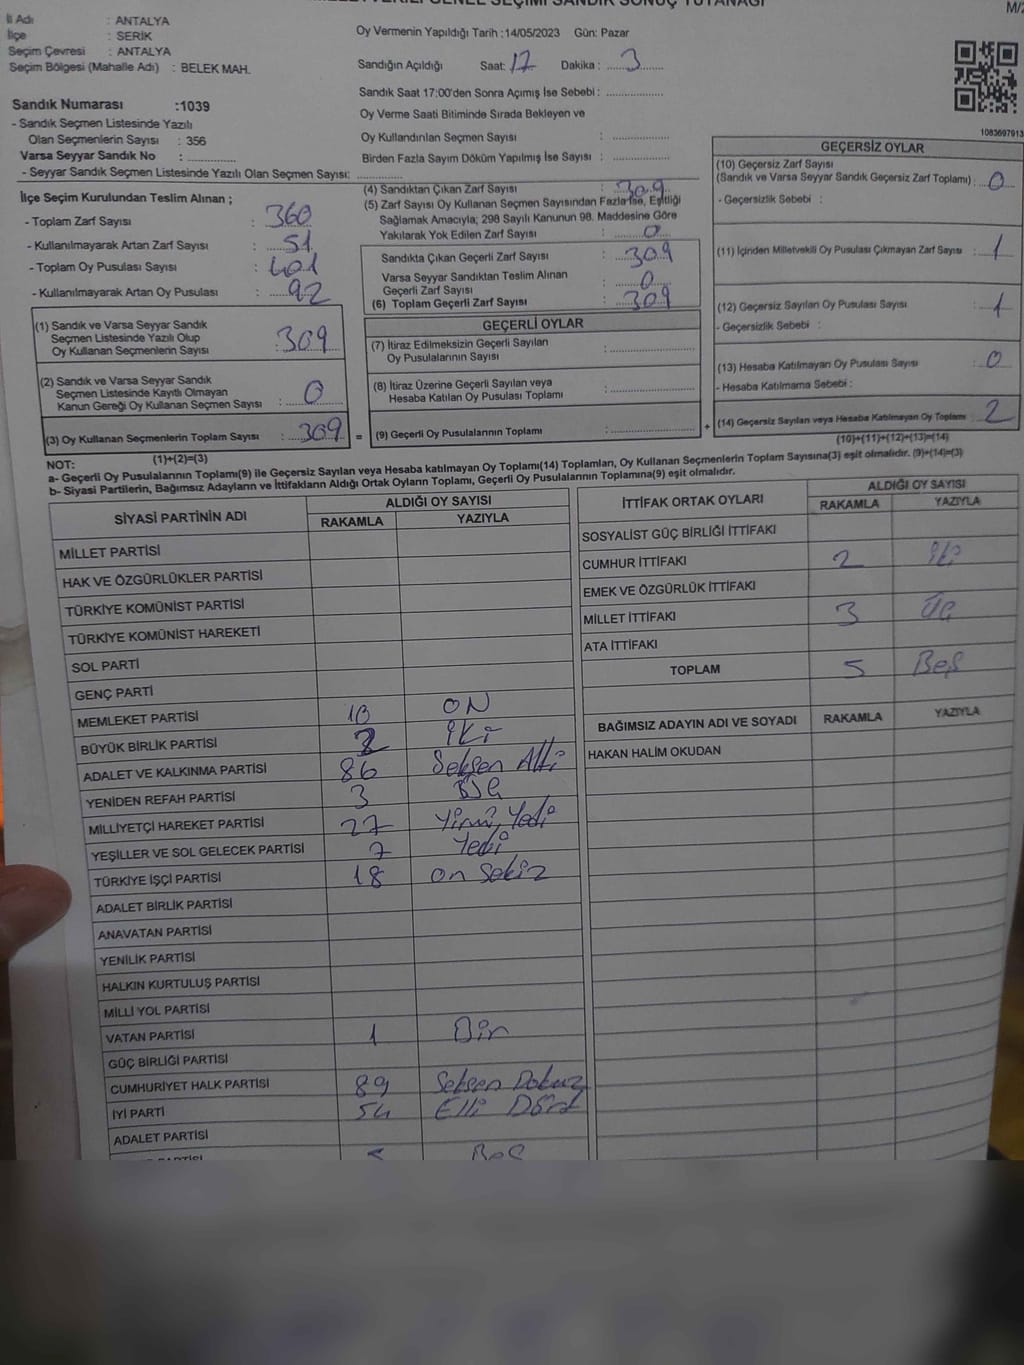 MİLLETVEKİLİ GENEL SEÇİMİ SANDIK SONUÇ TUTANAĞI
İl Adı : ANTALYA
İlçe : SERİK
Seçim Çevresi : ANTALYA
Seçim Bölgesi (Mahalle Adı) : BELEK MAH.
Sandık Numarası :1039
- Sandık Seçmen Listesinde Yazılı
Olan Seçmenlerin Sayısı : 356
Varsa Seyyar Sandık No :
- Seyyar Sandık Seçmen Listesinde Yazılı Olan Seçmen Sayısı:
Oy Vermenin Yapıldığı Tarih :14/05/2023 Gün: Pazar
Sandığın Açıldığı Saat: 17 Dakika : 3
Sandık Saat 17:00'den Sonra Açımış İse Sebebi :
Oy Verme Saati Bitiminde Sırada Bekleyen ve
Oy Kullandırılan Seçmen Sayısı :
Birden Fazla Sayım Döküm Yapılmış İse Sayısı :
1083697913
İlçe Seçim Kurulundan Teslim Alınan ;
- Toplam Zarf Sayısı : 360
- Kullanılmayarak Artan Zarf Sayısı : 51
- Toplam Oy Pusulası Sayısı : 401
- Kullanılmayarak Artan Oy Pusulası : 92
(1) Sandık ve Varsa Seyyar Sandık
Seçmen Listesinde Yazılı Olup
Oy Kullanan Seçmenlerin Sayısı : 309
(2) Sandık ve Varsa Seyyar Sandık
Seçmen Listesinde Kayıtlı Olmayan
Kanun Gereği Oy Kullanan Seçmen Sayısı : 0
(3) Oy Kullanan Seçmenlerin Toplam Sayısı : 309 =
(1)+(2)=(3)
(4) Sandıktan Çıkan Zarf Sayısı : 309
(5) Zarf Sayısı Oy Kullanan Seçmen Sayısından Fazla İse, Eşitliği
Sağlamak Amacıyla; 298 Sayılı Kanunun 98. Maddesine Göre
Yakılarak Yok Edilen Zarf Sayısı : 0
Sandıkta Çıkan Geçerli Zarf Sayısı : 309
Varsa Seyyar Sandıktan Teslim Alınan
Geçerli Zarf Sayısı : 0
(6) Toplam Geçerli Zarf Sayısı : 309
GEÇERLİ OYLAR
(7) İtiraz Edilmeksizin Geçerli Sayılan
Oy Pusulalarının Sayısı :
(8) İtiraz Üzerine Geçerli Sayılan veya
Hesaba Katılan Oy Pusulası Toplamı :
(9) Geçerli Oy Pusulalarının Toplamı : +
GEÇERSİZ OYLAR
(10) Geçersiz Zarf Sayısı
(Sandık ve Varsa Seyyar Sandık Geçersiz Zarf Toplamı) : 0
- Geçersizlik Sebebi :
(11) İçinden Milletvekili Oy Pusulası Çıkmayan Zarf Sayısı : 1
(12) Geçersiz Sayılan Oy Pusulası Sayısı : 1
- Geçersizlik Sebebi :
(13) Hesaba Katılmayan Oy Pusulası Sayısı : 0
- Hesaba Katılmama Sebebi :
(14) Geçersiz Sayılan veya Hesaba Katılmayan Oy Toplamı : 2
(10)+(11)+(12)+(13)=(14)
NOT:
a- Geçerli Oy Pusulalarının Toplamı(9) ile Geçersiz Sayılan veya Hesaba katılmayan Oy Toplamı(14) Toplamları, Oy Kullanan Seçmenlerin Toplam Sayısına(3) eşit olmalıdır. (9)+(14)=(3)
b- Siyasi Partilerin, Bağımsız Adayların ve İttifakların Aldığı Ortak Oyların Toplamı, Geçerli Oy Pusulalarının Toplamına(9) eşit olmalıdır.
SİYASİ PARTİNİN ADI ALDIĞI OY SAYISI
RAKAMLA YAZIYLA
MİLLET PARTİSİ
HAK VE ÖZGÜRLÜKLER PARTİSİ
TÜRKİYE KOMÜNİST PARTİSİ
TÜRKİYE KOMÜNİST HAREKETİ
SOL PARTİ
GENÇ PARTİ
MEMLEKET PARTİSİ 10 ON
BÜYÜK BİRLİK PARTİSİ 2 iki
ADALET VE KALKINMA PARTİSİ 86 Seksen Altı
YENİDEN REFAH PARTİSİ 3
MİLLİYETÇİ HAREKET PARTİSİ 27 Yirmi Yedi
YEŞİLLER VE SOL GELECEK PARTİSİ 7 Yedi
TÜRKİYE İŞÇİ PARTİSİ 18 on sekiz
ADALET BİRLİK PARTİSİ
ANAVATAN PARTİSİ
YENİLİK PARTİSİ
HALKIN KURTULUŞ PARTİSİ
MİLLİ YOL PARTİSİ
VATAN PARTİSİ 1 Bir
GÜÇ BİRLİĞİ PARTİSİ
CUMHURİYET HALK PARTİSİ 89 Seksen Dokuz
İYİ PARTİ 54 Elli Dört
ADALET PARTİSİ
5 Beş
İTTİFAK ORTAK OYLARI ALDIĞI OY SAYISI
RAKAMLA YAZIYLA
SOSYALİST GÜÇ BİRLİĞİ İTTİFAKI
CUMHUR İTTİFAKI 2 iki
EMEK VE ÖZGÜRLÜK İTTİFAKI
MİLLET İTTİFAKI 3 Üç
ATA İTTİFAKI
TOPLAM 5 Beş
BAĞIMSIZ ADAYIN ADI VE SOYADI RAKAMLA YAZIYLA
HAKAN HALİM OKUDAN